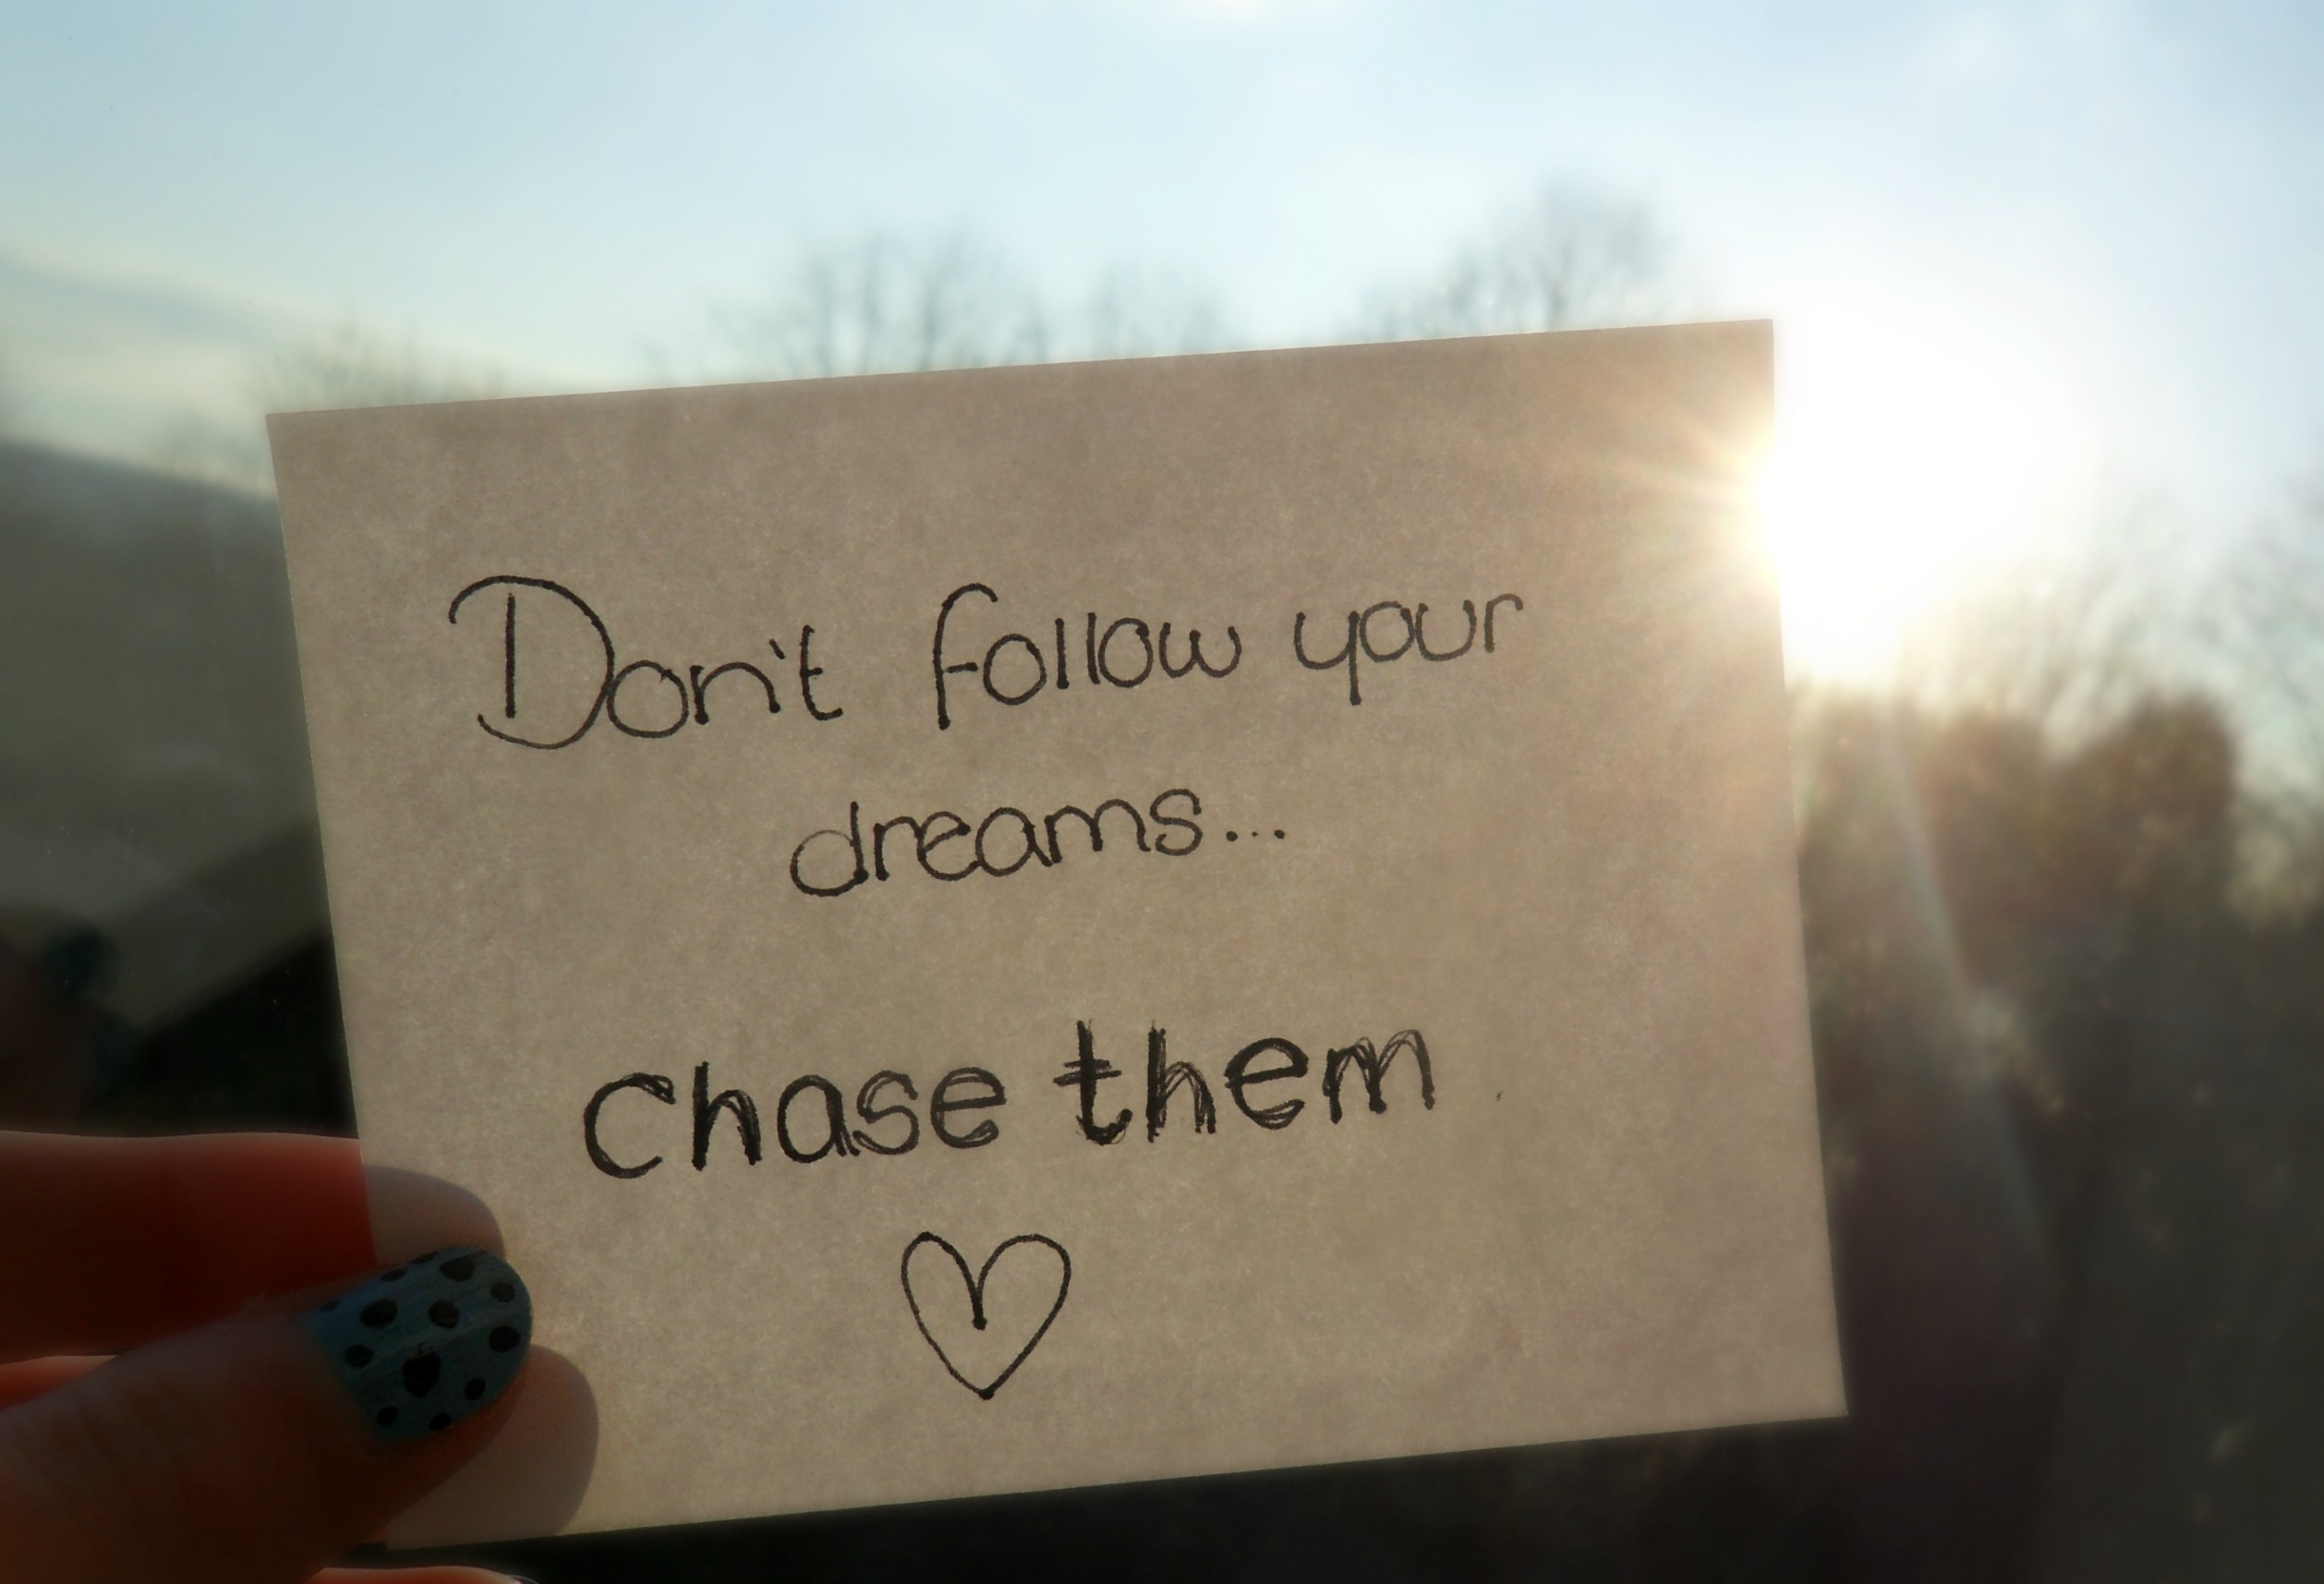 Don't follow your
dreams...
chase them